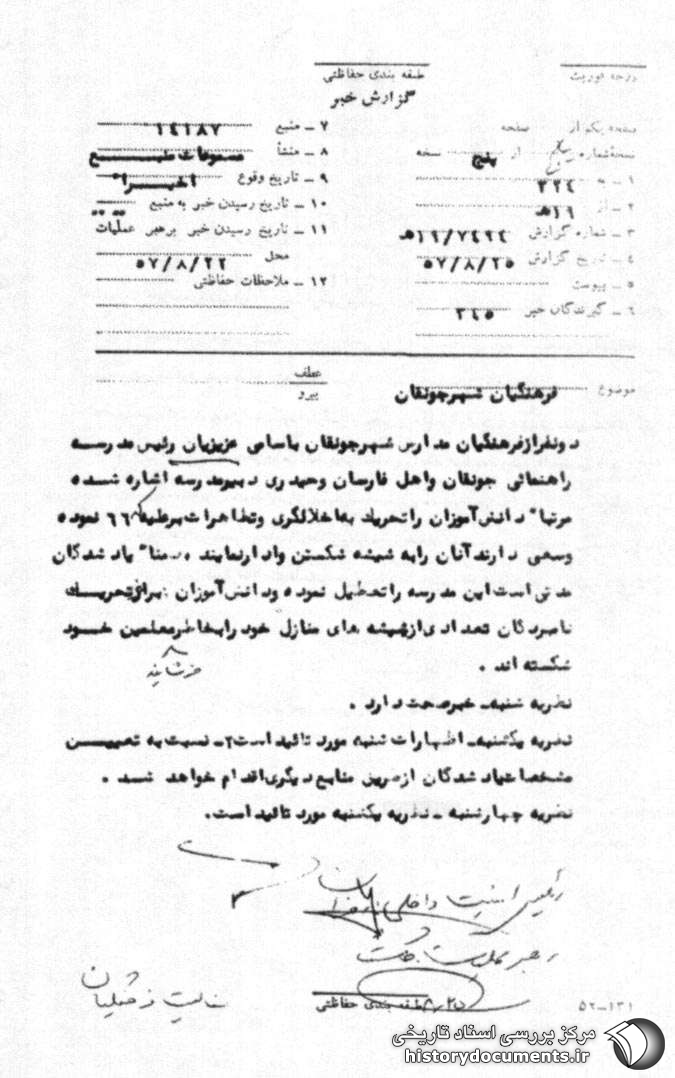 درجه فوریت
طبقه بندی حفاظتی
گزارش خبر
صفحه یک از صفحه
نسخه شماره از پنج نسخه
۱ ـ به ۳۲٤
۲ ـ از ۱۹هـ
۳ ـ شماره گزارش ۱۹/۷٤۹٤هـ
٤ ـ تاریخ گزارش ۵۷/۸/۲۵
۵ ـ پیوست
٦ ـ گیرندگان خبر ۳٤۵
۷ ـ منبع ۱٤۱۸۷
۸ ـ منشأ مسموعات منبع
۹ ـ تاریخ وقوع اخیرا"
۱۰ ـ تاریخ رسیدن خبر به منبع
۱۱ ـ تاریخ رسیدن خبر برهبر عملیات
محل ۵۷/۸/۲۲
۱۲ ـ ملاحظات حفاظتی
موضوع فرهنگیان شهرجونقان
عطف
پیرو
دونفرازفرهنگیان مدارس شهرجونقان باسامی عزیزیان رئیس مدرسه
راهنمائی جونقان واهل فارسان وحیدری دبیرمدرسه اشاره شده
مرتبا" دانش‌آموزان راتحریک به‌اخلالگری وتظاهرات برعلیه ٦٦ نموده
وسعی دارندآنان رابه شیشه شکستن وادارنمایند ضمنا" یادشدگان
مدتی‌است‌این مدرسه راتعطیل نموده ودانش‌آموزان براثرتحریک
نامبردگان تعدادی‌ازشیشه های منازل خودرابخاطرمعلمین خود
شکسته اند .
نظریه شنبه‌ـ خبرصحت دارد .
نظریه یکشنبه‌ـ اظهارات شنبه مورد تائید است۲ـ نسبت به تعیین
مشخصات‌یاد شدگان ازطریق منابع‌دیگری‌اقدام خواهد شد .
نظریه چهارشنبه ـ نظریه یکشنبه مورد تائید است.
رئیس امنیت داخلی
رهبر عملیات
فعالیت فرهنگیان
طبقه بندی حفاظتی
۵۲-۱۳۱
مرکز بررسی اسناد تاریخی
historydocuments.ir